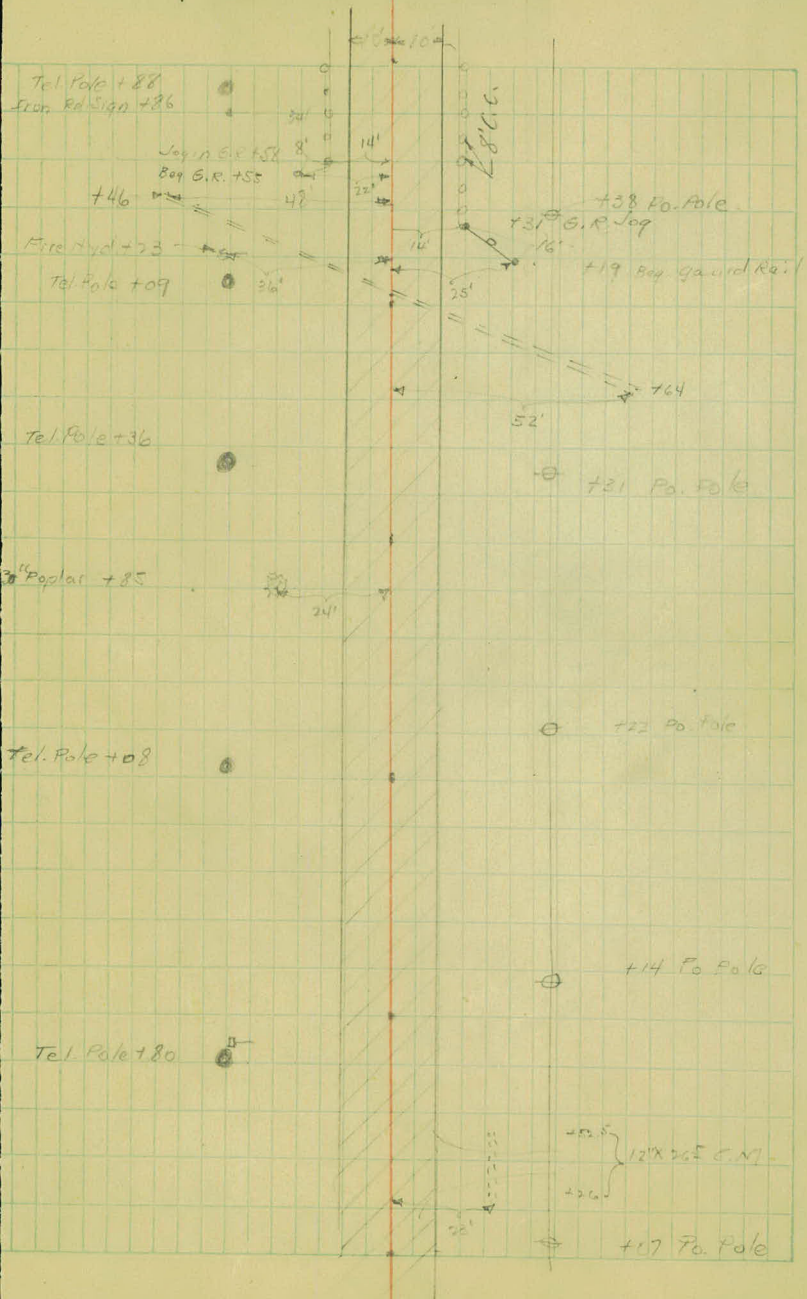 10
Tel. Pole +88
Iron Rd. Sign +86
34'
8'C.C.
Jog in G.R. +58 8' 14'
Beg G.R. +55
22'
+46 48'
+38 Po. Pole
+37 G.R. Jog
14' 16'
Fire Hyd +23
+19 Beg Guard Rail
Tel Pole +09 36' 25'
+64
52'
Tel. Pole +36
+31 Po. Pole
30" Poplar +85
24'
+22 Po. Pole
Tel. Pole +08
+14 Po Pole
Tel. Pole +80
+26
28'
+07 Po. Pole